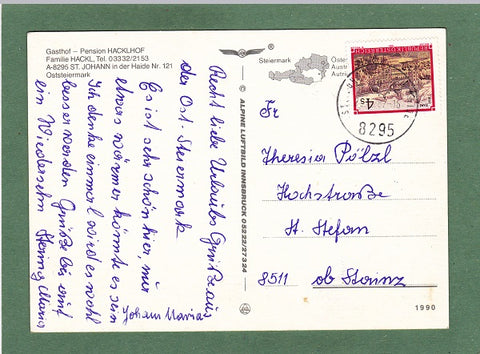 Gasthof – Pension HACKLHOF
Familie HACKL, Tel. 03332/2153
A-8295 ST. JOHANN in der Haide Nr. 121
Oststeiermark
Recht liebe Urlaubs Grüße aus
der Ost. Steiermark
Es ist sehr schön hier, nur
etwas wärmer könnte es sein
Ich denke einmal wird es wohl
besser werden Grüße bis auf
ein Wiedersehn
Johann Maria
© ALPINE LUFTBILD INNSBRUCK 05222/27324
®
Steiermark
REPUBLIK ÖSTERREICH
4s
8295
Fr
Theresia Pölzl
Hochstraße
St. Stefan
8511 ob Stainz
1990